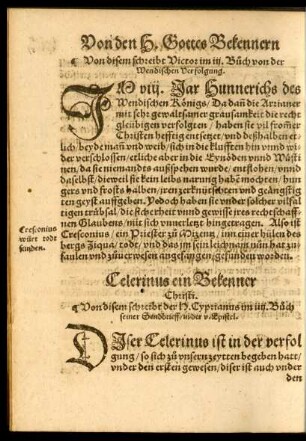 Von den H. Gottes Bekennern
¶ Von disem schreibt Victor im iij. Bůch von der
Wendischen Verfolgung.
IM viij. Jar Hunnerichs des
Wendischen Königs / Da dañ die Arrianer
mit sehr gewaltsamer grausamkeit die recht
gleubigen verfolgten / haben sie vil frommer
Christen hefftig entsetzet / vnd deßhalben et-
lich / beyde mañ vnd weib / sich in die klufften hin vnnd wi
der verschlossen / etliche aber in die Eynöden vnnd Wůsti
nen / da sie niemands auffsehen wurde / entflohen / vnnd
daselbst / dieweil sie kein leibs narung habē mochten / hun
gers vnd frosts halben / jren zerknütschten vnd geängstig
ten geyst auffgeben. Yedoch haben sie vnder solcher vilfal
tigen trübsal / die sicherheit vnnd gewisse jres rechtschaff-
nen Glaubens / mit sich vnuerletzt hingetragen. Also ist
Cresconius / ein Priester zů Myzent / inn einer hülen des
bergs Ziqua / todt / vnd das jm sein leichnam nun har zů
faulen vnd zůuerwesen angefangen / gefunden worden.
Cresconius
würt todt
funden.
Celerinus ein Bekenner
Christi.
¶ Von disem schreibt der H. Cyprianus im iiij. Bůch
seiner Sendbrieff / in der v. Epistel.
DIser Celerinus ist in der verfol
gung / so sich zů vnsern zeytten begeben hatt /
vnder den ersten gewesen / diser ist auch vnder
den